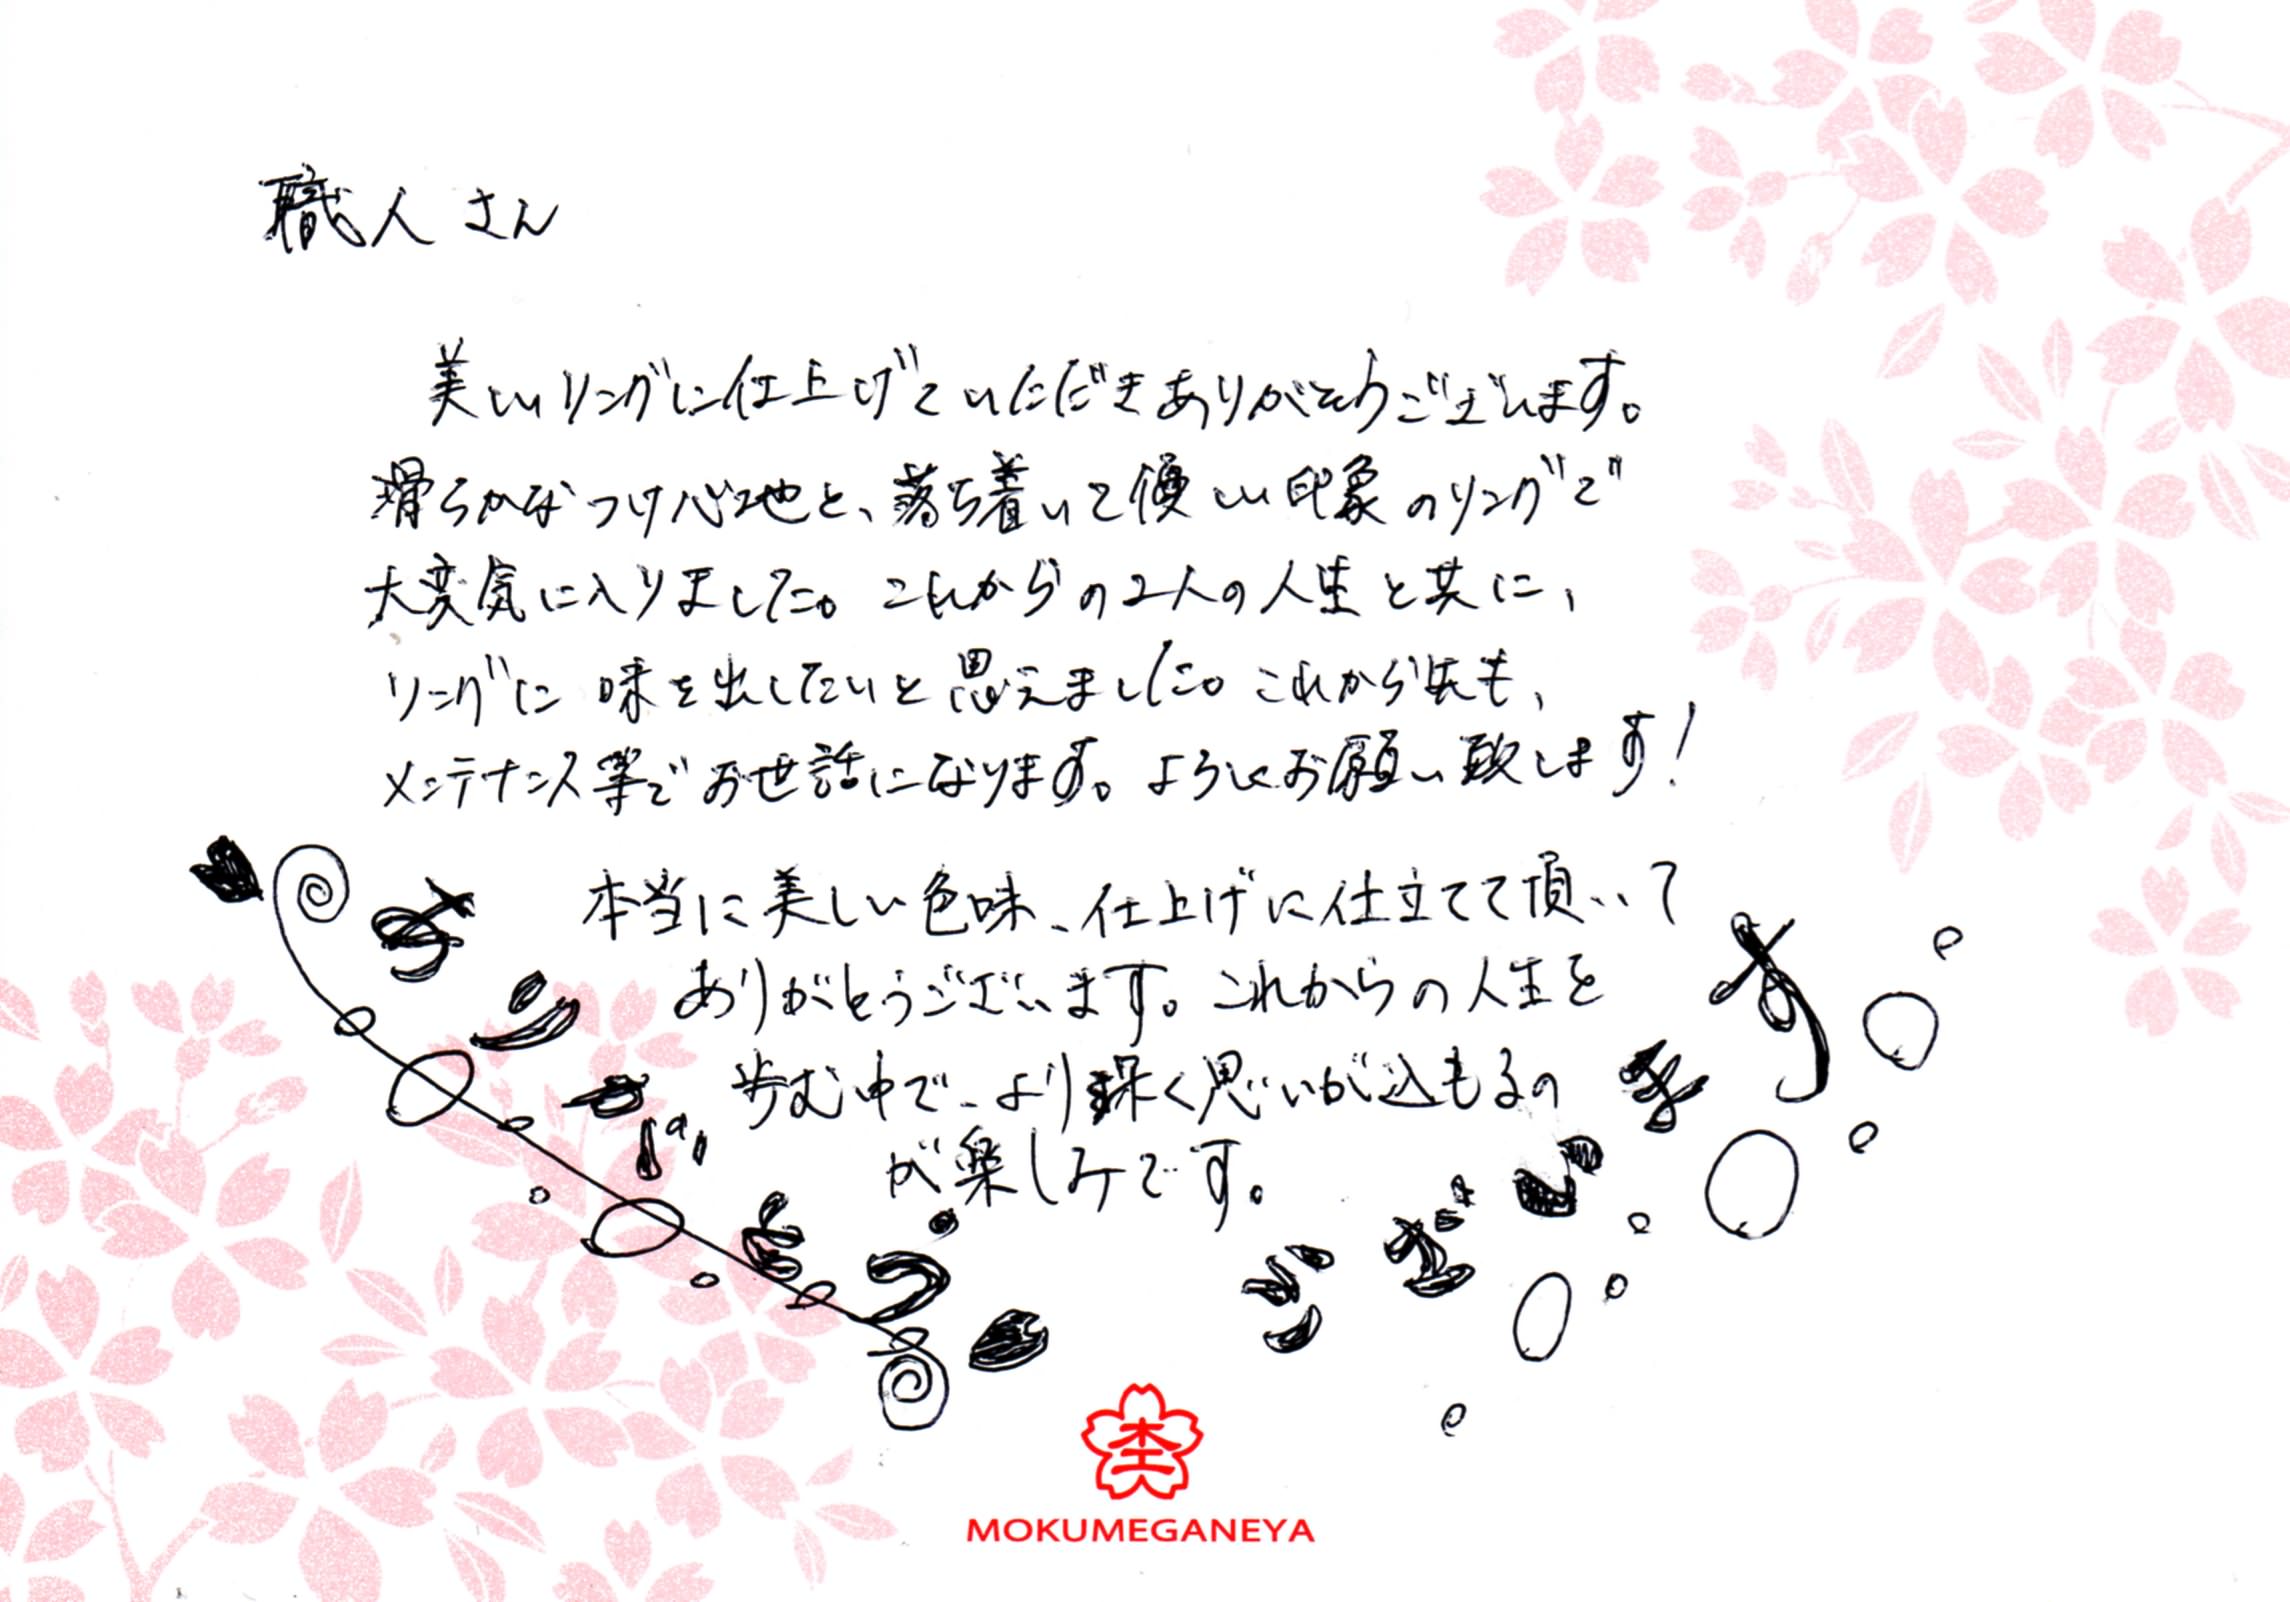 職人さん
美しいリングに仕上げていただきありがとうございます。
滑らかなつけ心地と、落ち着いて優しい印象のリングで
大変気に入りました。これからの2人の人生と共に、
リングに味を出したいと思えました。これから先も、
メンテナンス等でお世話になります。よろしくお願い致します!
本当に美しい色味、仕上げに仕立てて頂いて
ありがとうございます。これからの人生を
歩む中で、より深く思いが込もるの
が楽しみです。
ありがとう
ございます
杢
MOKUMEGANEYA